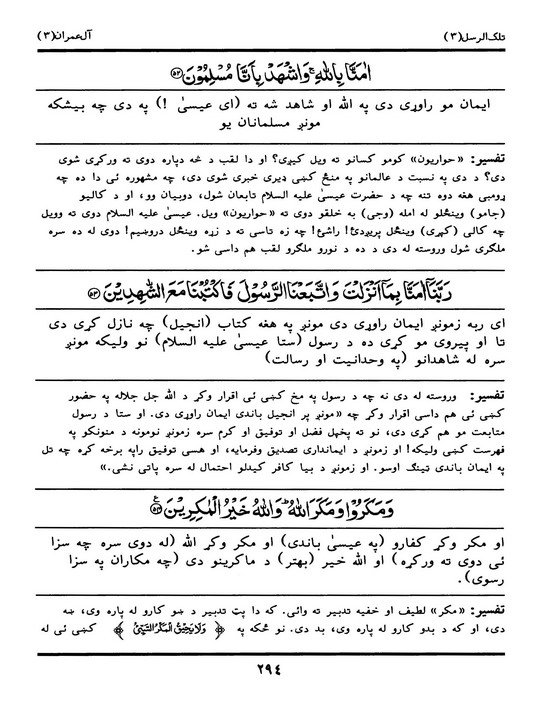 تلک الرسل(۳) آل عمران(۳)
اٰمَنَّا بِاللّٰهِ ۚ وَاشْهَدْ بِاَنَّا مُسْلِمُوْنَ ﴿۵۲﴾
ایمان مو راوړی دی په الله او شاهد شه ته (ای عیسیٰ !) په دی چه بیشکه
مونږ مسلمانان یو
تفسیر: «حواریون» کومو کسانو ته ویل کیږی؟ او دا لقب د څه دپاره دوی ته ورکړی شوی
دی؟ د دی په نسبت د عالمانو په منځ کښی ډیری خبری شوی دی، چه مشهوره ئی دا ده چه
ړومبی هغه دوه تنه چه د حضرت عیسیٰ علیه السلام تابعان شول، دوبیان وو، او د کالیو
(جامو) وینځلو له امله (وجی) به خلقو دوی ته «حواریون» ویل. عیسیٰ علیه السلام دوی ته وویل
چه کالی (کپړی) وینځل پریږدئ! راشئ! چه زه تاسی ته د زړه وینځل دروښیم! دوی له ده سره
ملګری شول وروسته له دی د ده د نورو ملګرو لقب هم داسی شو.
رَبَّنَآ اٰمَنَّا بِمَآ اَنْزَلْتَ وَاتَّبَعْنَا الرَّسُوْلَ فَاكْتُبْنَا مَعَ الشّٰهِدِيْنَ ﴿۵۳﴾
ای ربه زمونږ ایمان راوړی دی مونږ په هغه کتاب (انجیل) چه نازل کړی دی
تا او پیروی مو کړی ده د رسول (ستا عیسیٰ علیه السلام) نو ولیکه مونږ
سره له شاهدانو (په وحدانیت او رسالت)
تفسیر: وروسته له دی نه چه د رسول په مخ کښی ئی اقرار وکړ د الله جل جلاله په حضور
کښی ئی هم داسی اقرار وکړ چه «مونږ پر انجیل باندی ایمان راوړی دی. او ستا د رسول
متابعت مو هم کړی دی، نو ته پخپل فضل او توفیق او کرم سره زمونږ نومونه د منونکو په
فهرست کښی ولیکه! او زمونږ د ایمانداری تصدیق وفرمایه، او هسی توفیق راپه برخه کړه چه تل
په ایمان باندی ټینګ اوسو. او زمونږ د بیا کافر کیدلو احتمال له سره پاتی نشی.»
وَمَكَرُوْا وَمَكَرَ اللّٰهُ ؕ وَاللّٰهُ خَيْرُ الْمٰكِرِيْنَ ﴿۵۴﴾
او مکر وکړ کفارو (په عیسیٰ باندی) او مکر وکړ الله (له دوی سره چه سزا
ئی دوی ته ورکړه) او الله خیر (بهتر) د ماکرینو دی (چه مکاران په سزا
رسوی).
تفسیر: «مکر» لطیف او خفیه تدبیر ته وائی. که دا پټ تدبیر د ښو کارو له پاره وی، ښه
دی، او که د بدو کارو له پاره وی، بد دی. نو ځکه په ﴿ وَلَا يَحِيْقُ الْمَكْرُ السَّيِّئُ ﴾ کښی ئی له
۲۹٤